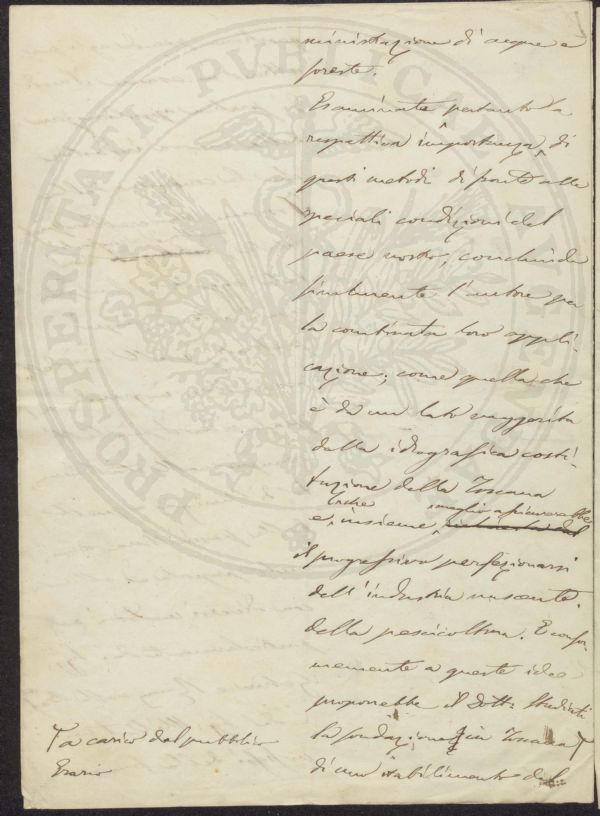 ministrazione di acque e
foreste.
Esaminata pertanto la
respettiva importanza, di
questi metodi di fronte alle
speciali condizioni del
paese nostro, conclude
finalmente l'autore per
la combinata loro appli-
cazione; come quella che
è da un lato suggerita
dalla idrografica costi-
tuzione della Toscana
che meglio assicurerebbe
e, insieme,
il progressivo perfezionarsi
dell'industria nascente
della pescicoltura. E confor-
memente a queste idee
proporrebbe il Dott.
la fondazione in Toscana
di uno stabilimento del
a carico del pubblico
Erario
PROSPERITATI PUBLICAE AUGENDAE